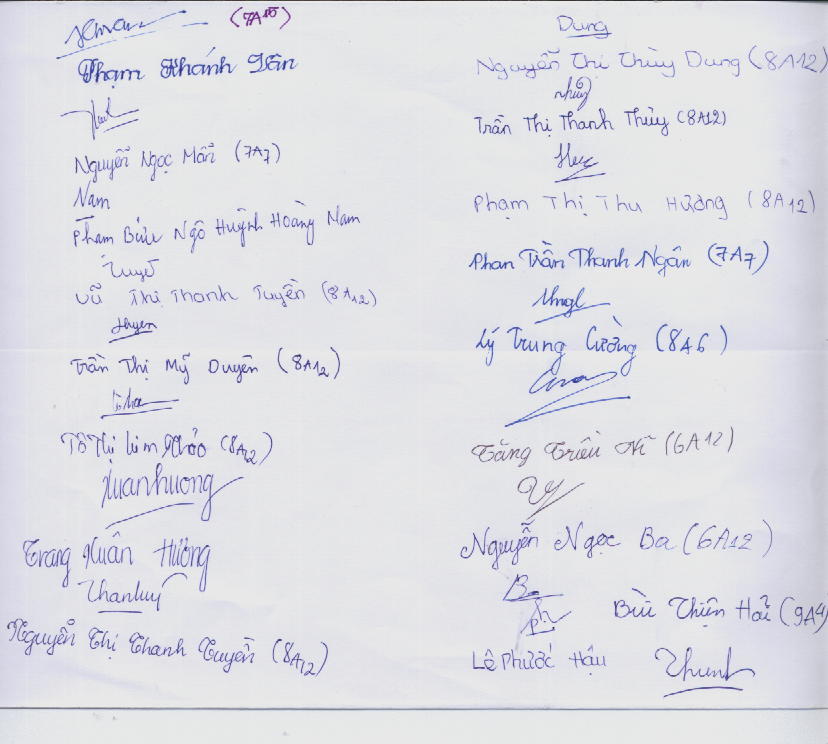 (7A15)
Phạm Khánh Vân
Nguyễn Ngọc Mẫn (7A7)
Nam
Phạm Bửu Ngô Huỳnh Hoàng Nam
Tuyề
Vũ Thị Thanh Tuyền (8A12)
Duyen
Trần Thị Mỹ Duyên (8A12)
Tô Thị Kim Thảo (8A12)
Xuanhuong
Trang Xuân Hương
Thantuy
Nguyễn Thị Thanh Tuyền (8A12)
Dung
Nguyễn Thị Thùy Dung (8A12)
Trần Thị Thanh Thủy (8A12)
Phạm Thị Thu Hương (8A12)
Phan Trần Thanh Ngân (7A7)
Lý Trung Cường (8A6)
Tăng Triều Vĩ (6A12)
Vy
Nguyễn Ngọc Ba (6A12)
Ba
Bùi Thiện Hải (9A4)
Lê Phước Hậu